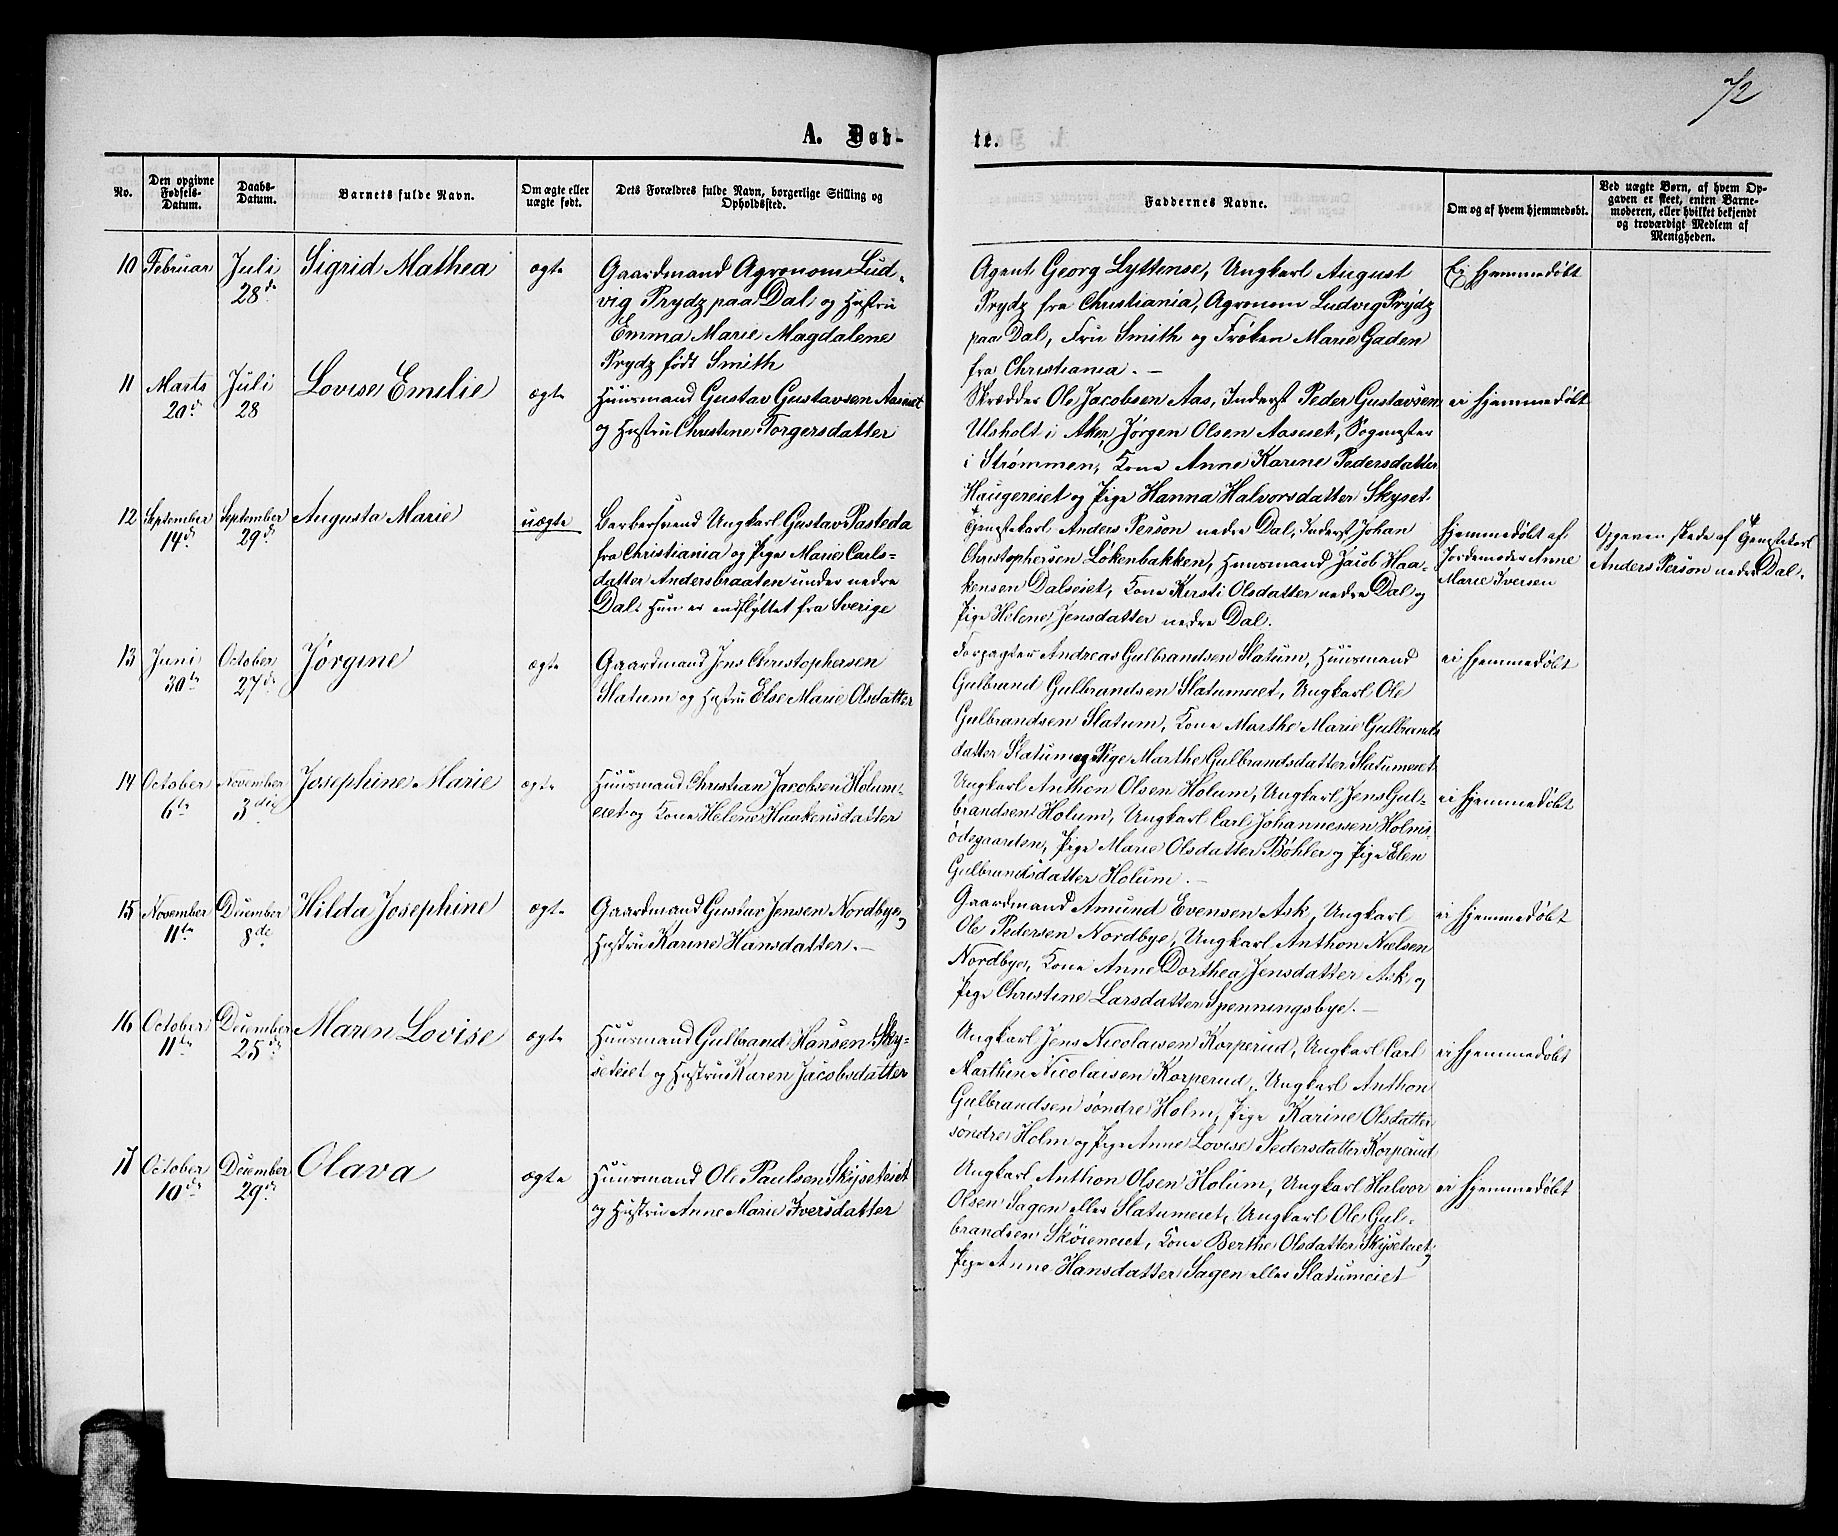 72
A. Døb-
te.
No.
Den opgivne Fødsels-Datum.
Daabs-Datum.
Barnets fulde Navn.
Om ægte eller uægte født.
Dets Forældres fulde Navn, borgerlige Stilling og Opholdssted.
Faddernes Navne.
Om og af hvem hjemmedøbt.
Ved uægte Børn, af hvem Opgaven er skeet, enten Barnemoderen, eller hvilket bekjendt og troværdigt Medlem af Menigheden.
10 Februar Juli 28de Sigrid Mathea ægte
Gaardmand Agronom Lud-
vig Prydz paa Dal og Hustru
Emma Marie Magdalene
Prydz født Smith
Agent Georg Lyttense, Ungkarl August
Prydz fra Christiania, Agronom Ludvig Prydz
paa Dal, Fru Smith og Frøken Marie Gaden
fra Christiania. –
Ei hjemmedøbt
11 Marts 20de Juli 28 Lovise Emelie ægte
Huusmand Gustav Gustavsen Aaseiet
og Hustru Christine Torgersdatter
Skrædder Ole Jacobsen Aas, Inderst Peder Gustavsen
Ulsholt i Aker, Jørgen Olsen Aaseiet, Sogmester
i Strømmen, Kone Anne Karine Pedersdatter
Haugereiet og Pige Hanna Halvorsdatter Skyset
ei hjemmedøbt
12 September 14de September 29de Augusta Marie uægte
Barbersvend Ungkarl Gustav Pasteda
fra Christiania og Pige Marie Carls-
datter Andersbraaten under nedre
Dal. Hun er indflyttet fra Sverige
Gjengtekarl Anders Person nedre Dal, Inderst Johan
Christophersen Løkenbakken, Huusmand Jacob Haa-
kensen Dalseiet, Kone Kirsti Olsdatter nedre Dal og
Pige Helene Jensdatter nedre Dal.
hjemmedøbt af
Jordemoder Anne
Marie Iversen
Opgaven skede af
Anders Person nedre Dal.
13 Juni 30te October 27de Jørgine ægte
Gaardmand Jens Christophersen
Slatum og Hustru Else Marie Olsdatter
Forpagter Andreas Gulbrandsen Slatum, Huusmand
Gulbrand Gulbrandsen Slatumeiet, Ungkarl Ole
Gulbrandsen Slatum, Kone Marthe Marie Gulbrands
datter Slatum og Pige Marthe Gulbrandsdatter Slatumeiet
ei hjemmedøbt
14 October 6te November 3die Josephine Marie ægte
Huusmand Christian Jacobsen Holum-
eiet og Kone Helene Haakensdatter
Ungkarl Anthon Olsen Holum, Ungkarl Jens Gul-
brandsen Holum, Ungkarl Carl Johannessen Holms
ødegaarden, Pige Marie Olsdatter Bøhler og Pige Elen
Gulbrandsdatter Holum. –
ei hjemmedøbt
15 November 11te December 8de Hilda Josephine ægte
Gaardmand Gustav Jensen Nordbye og
Hustru Karine Hansdatter. –
Gaardmand Amund Evensen Ask, Ungkarl
Ole Pedersen Nordbye, Ungkarl Anthon Nielsen
Nordbye, Kone Anne Dorthea Jensdatter Ask og
Pige Christine Larsdatter Spenningsbye. –
ei hjemmedøbt
16 October 11te December 25de Maren Lovise ægte
Huusmand Gulbrand Hansen Sky-
seteiet og Hustru Karen Jacobsdatter
Ungkarl Jens Nicolaisen Korperud, Ungkarl Carl
Marthin Nicolaisen Korperud, Ungkarl Anthon
Gulbrandsen søndre Holm, Pige Karine Olsdatter
søndre Holm og Pige Anne Lovise Pedersdatter Korperud
ei hjemmedøbt
17 October 10de December 29de Olava ægte
Huusmand Ole Paulsen Skyseteiet
og Hustru Anne Marie Iversdatter
Ungkarl Anthon Olsen Holum, Ungkarl Halvor
Olsen Sagen eller Slatumeiet, Ungkarl Ole Gul-
brandsen Skøieneiet, Kone Berthe Olsdatter Skyseteiet,
Pige Anne Hansdatter Sagen eller Slatumeiet
ei hjemmedøbt